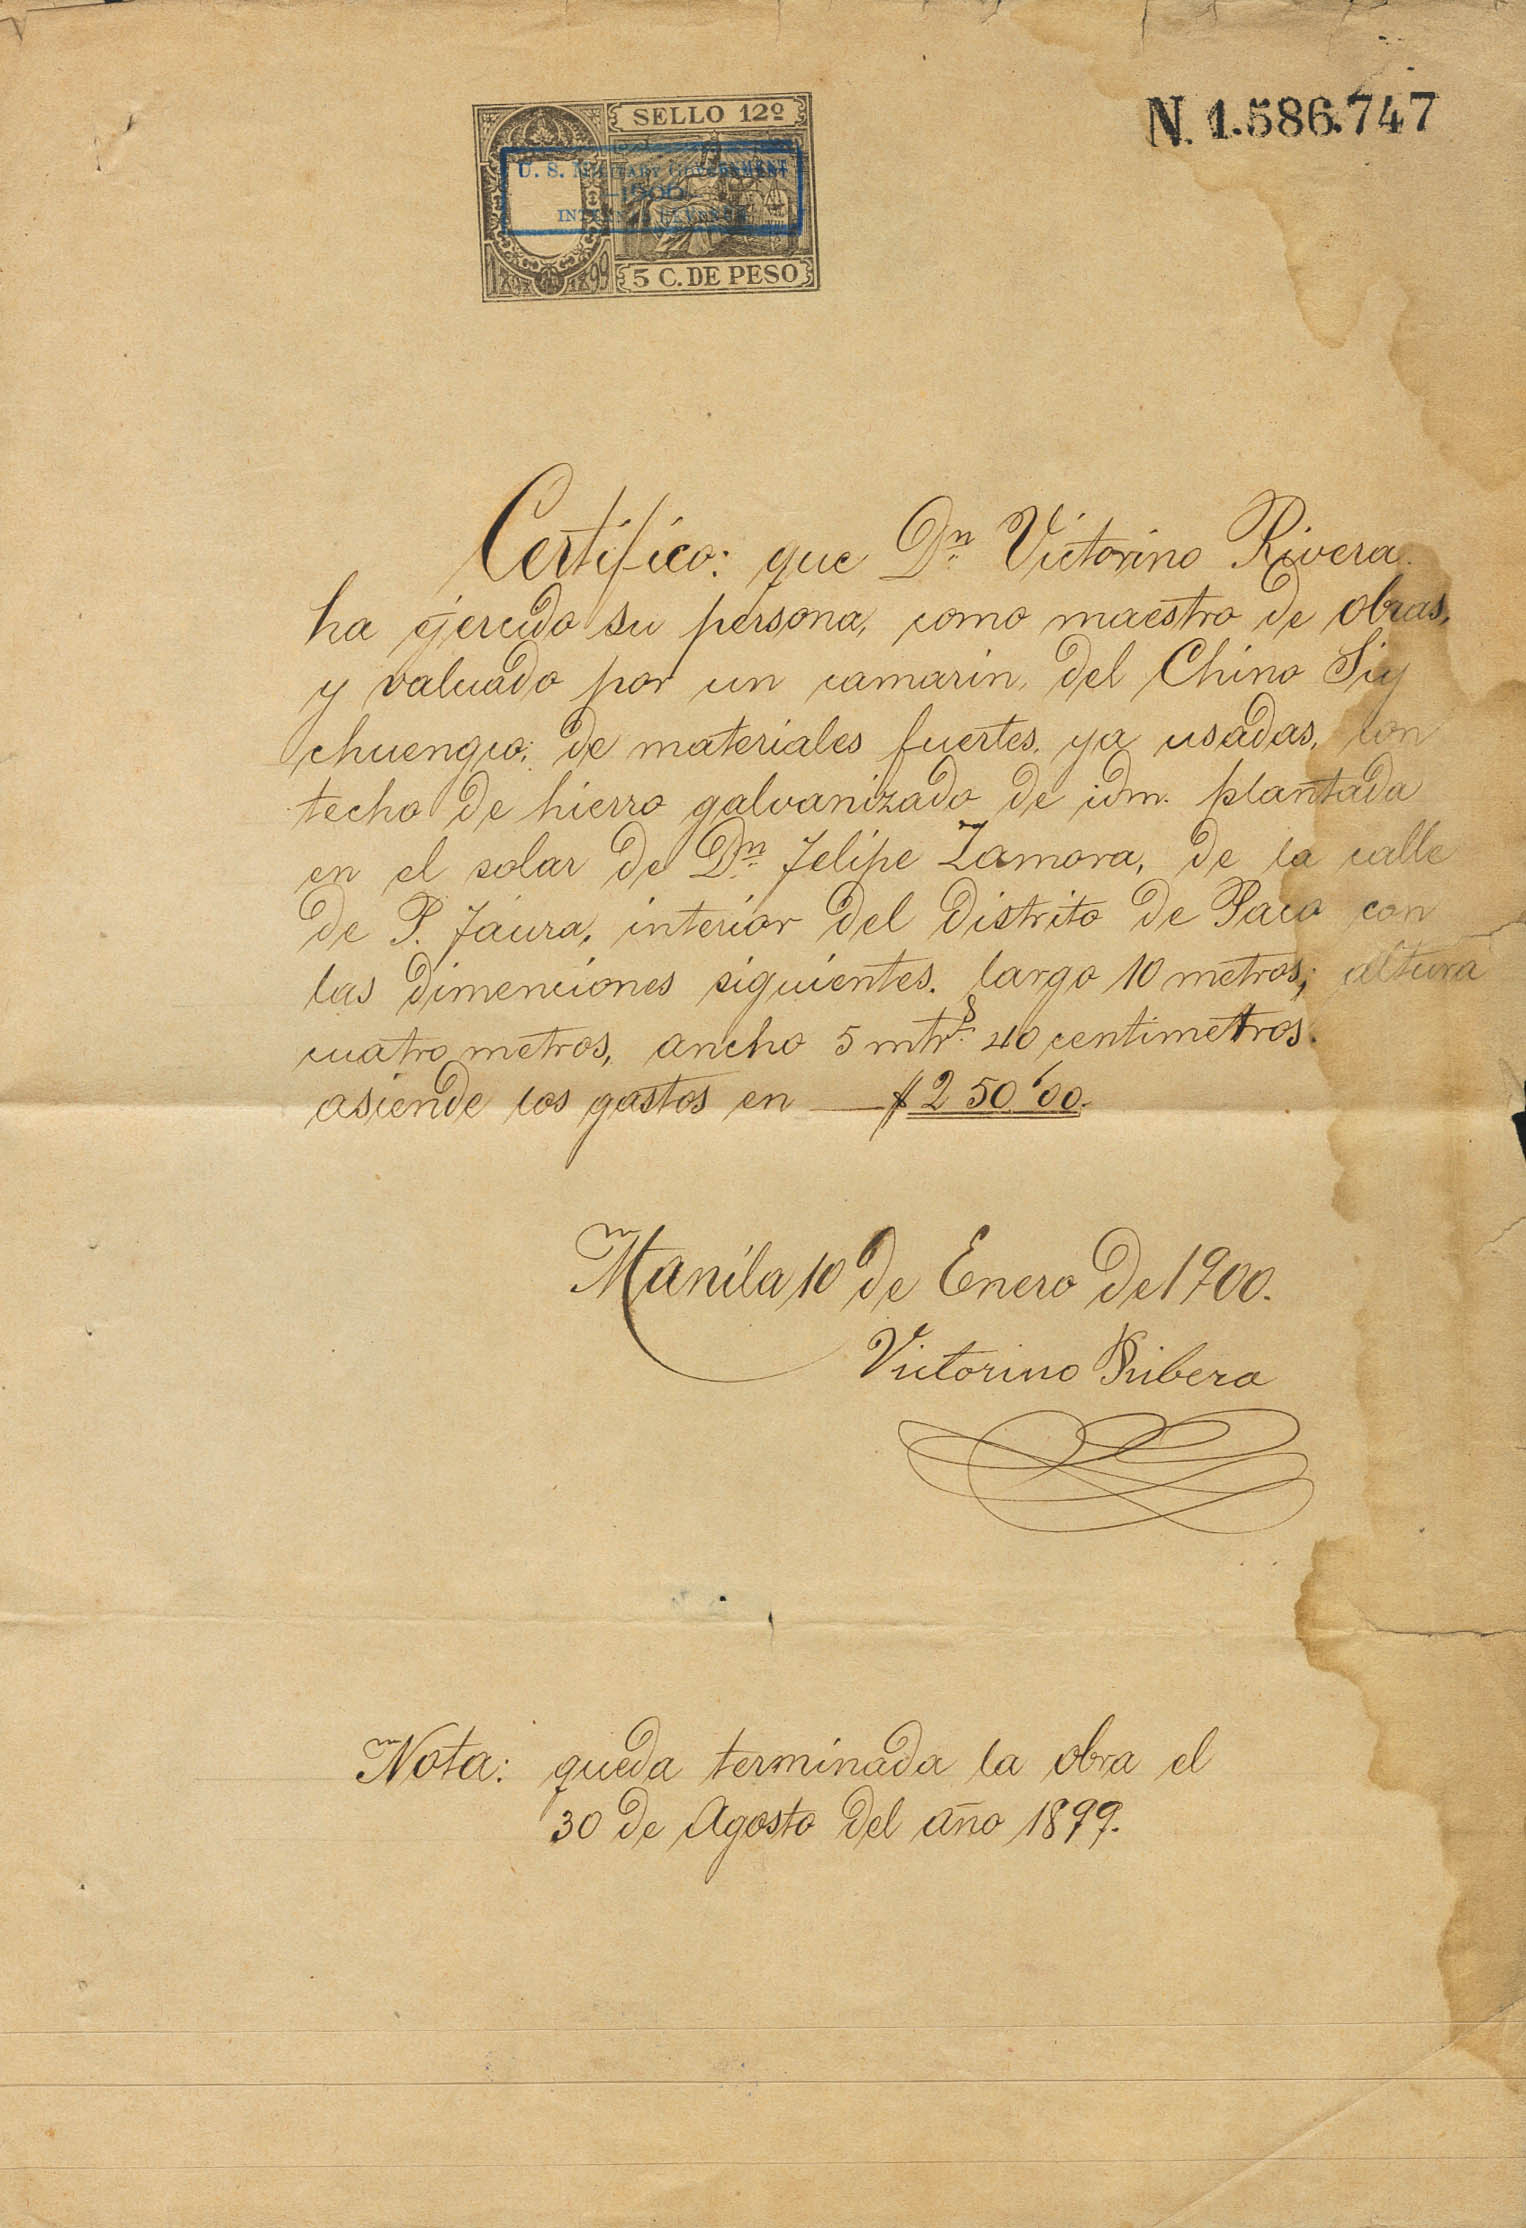 SELLO 12º
N. 1.586.747
U. S. MILITARY GOVERNMENT
1900
INTERNAL REVENUE
1898 1899
5 C. DE PESO
Certifico: que Dn. Victorino Rivera.
ha ejercido su persona, como maestro de obras,
y valuado por un camarin, del Chino Siy
chuengco; de materiales fuertes, ya usadas, con
techo de hierro galvanizado de idm. plantada
en el solar de Dn. Felipe Zamora, de la calle
de P. Faura, interior del distrito de Paco con
las dimenciones siguientes. largo 10 metros; altura
cuatro metros, ancho 5 mtrs. 40 centimetros.
asiende los gastos en — $ 250'00.
Manila 10 de Enero de 1900.
Victorino Ribera
Nota: queda terminada la obra el
30 de Agosto del año 1899.